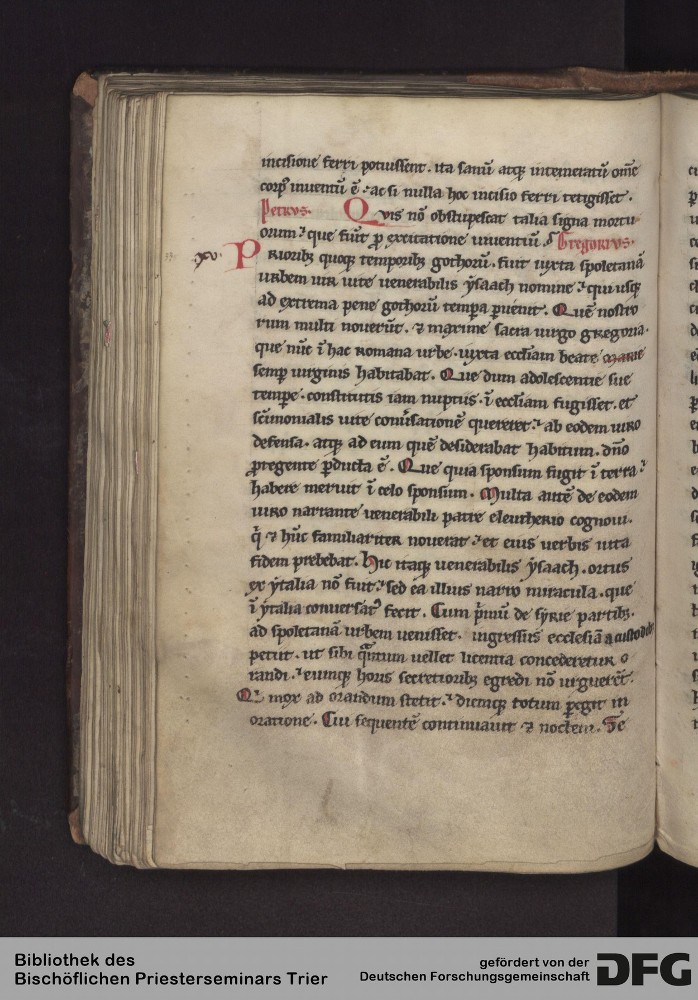 incisione ferri potuissent. ita sanū atq; intemeratū om̄e
corp᷒ inuentū ē. ac si nulla hoc incisio ferri tetigisset.
Petrus. Quis nō obstupescat talia signa mortu
orum? que fiūt ꝓ exercitatione uiuentiū. Gregorius.
xv. Priorib; quoq; temporib; gothorū. fuit iuxta spoletanā
urbem uir uite uenerabilis ysaach nomine. qui usq;
ad extrema pene gothorū tempa ꝑuenit. Quē nostro
rum multi nouerūt. ⁊ maxime sacra uirgo gregoria.
que nūc ī hac romana urbe. iuxta eccl̄iam beate marie
semꝑ uirginis habitabat. Que dum adolescentie sue
tempe. constitutis iam nuptiis. ī eccl̄iam fugisset. et
sc̄imonialis uite conūsationē quereret. ab eodem uiro
defensa. atq; ad eum quē desiderabat habitum. dn̄o
ꝓtegente ꝑducta ē. Que quia sponsum fugit ī terra.
habere meruit ī celo sponsum. Multa autē de eodem
uiro narrante uenerabili patre eleutherio cognoui.
q̇ ⁊ hūc familiariter nouerat. et eius uerbis uita
fidem prebebat. Hic itaq; uenerabilis ysaach. ortus
ex ytalia nō fuit. sed ea illius narro miracula. que
ī ytalia conuersat᷒ fecit. Cum pⁱmū de syrie partib;
ad spoletanā urbem uenisset. ingressus ecclesiā a custodib;
petiit. ut sibi qᵃntum uellet licentia concederetur o
randi. eumq; horis secretiorib; egredi nō urguerēt.
Qⁱ mox ad orandum stetit. diemq; totum ꝑegit in
oratione. Cui sequentē continuauit ⁊ noctem. Se
Bibliothek des
Bischöflichen Priesterseminars Trier
gefördert von der
Deutschen Forschungsgemeinschaft DFG